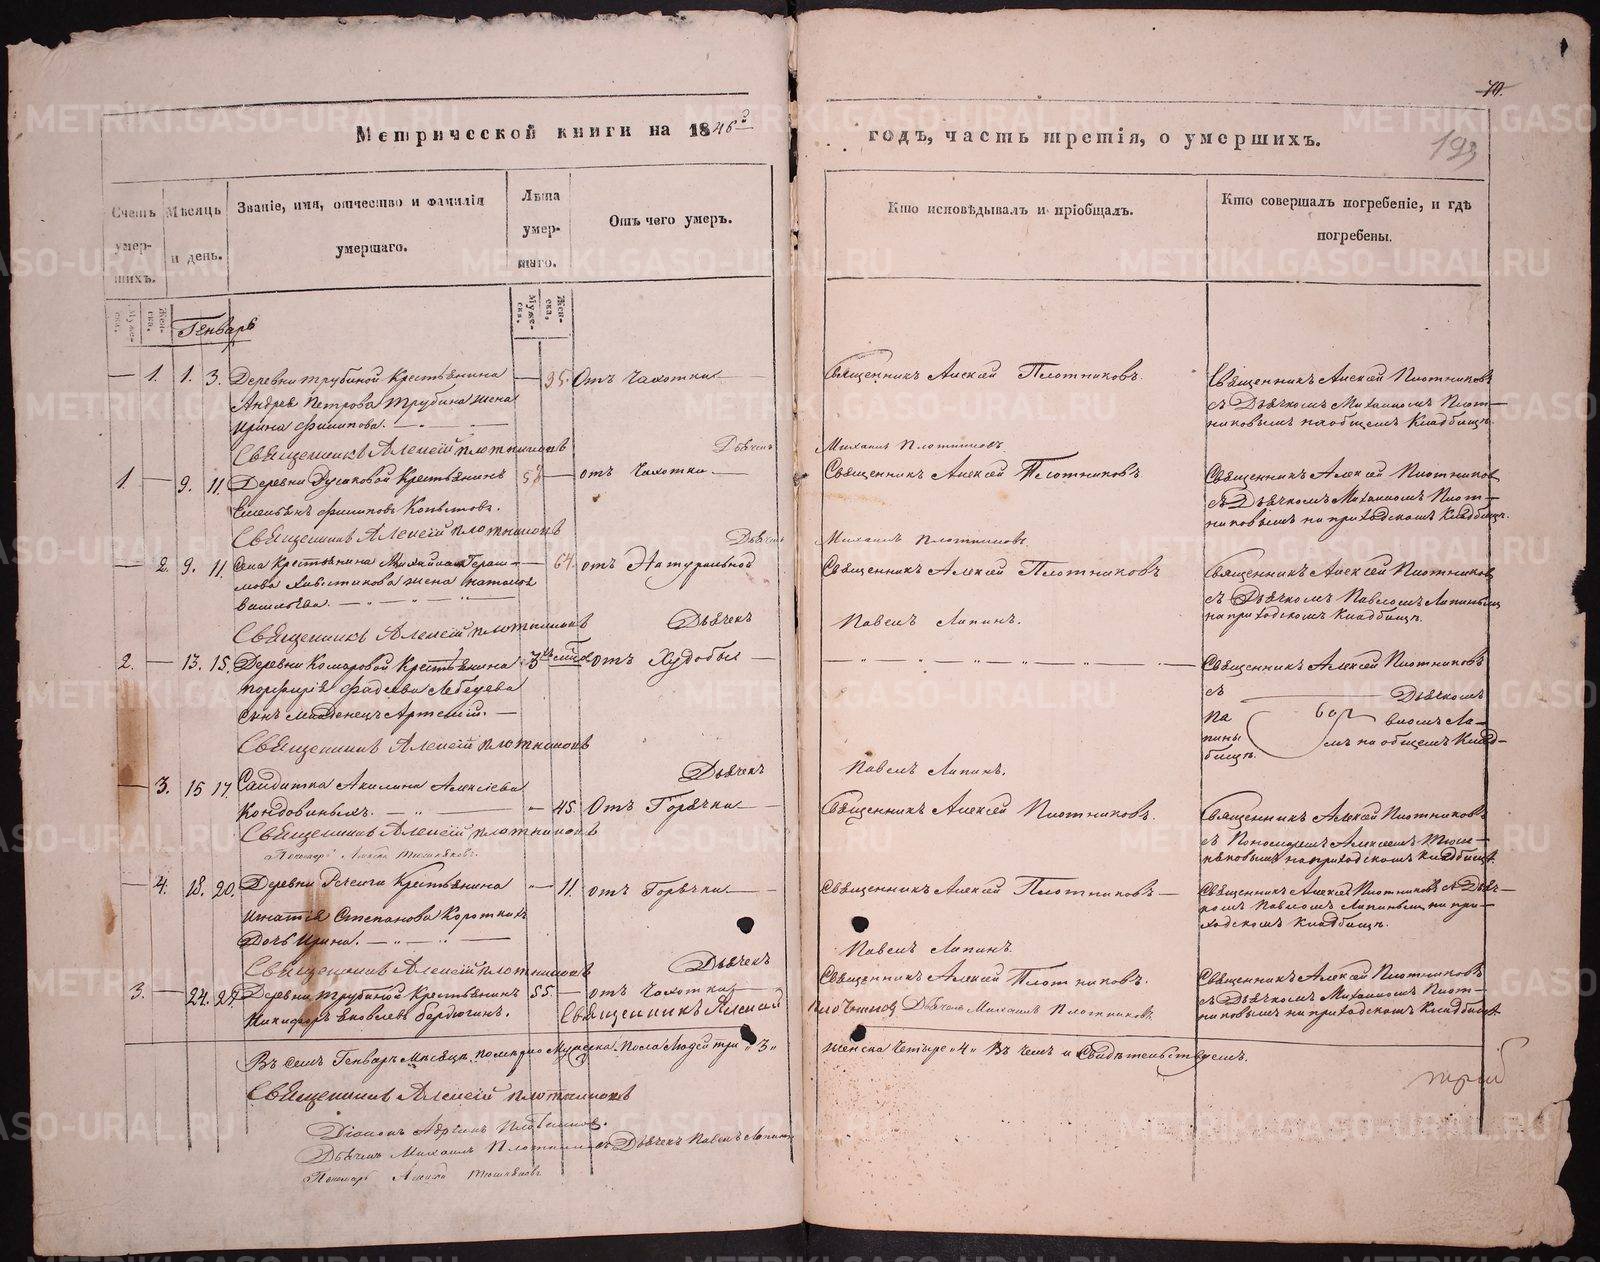 70.
193
Метрической книги на 1846й годъ, часть третія, о умершихъ.
Счетъ умер-шихъ.
Мѣсяцъ и день.
Званіе, имя, отчество и фамилія умершаго.
Лѣта умер-шаго.
Отъ чего умеръ.
Кто исповѣдывалъ и пріобщалъ.
Кто совершалъ погребеніе, и гдѣ погребены.
Муже-ска.
Жен-ска.
Муже-ска.
Жен-ска.
Генварь
— 1. 1. 3. Деревни Трубиной Крестьянина — 95. Отъ Чахотки — Священникъ Алексѣй Плотниковъ. Священникъ Алексѣй Плотниковъ
Андрея Петрова Трубина жена съ Дьячкомъ Михаиломъ Плот-
Ирина Филипова. никовымъ на общемъ Кладбищѣ.
Священникъ Алексѣй Плотниковъ Дьячекъ Михаилъ Плотниковъ
1. — 9. 11. Деревни Крестьянинъ 58 — отъ Чахотки. Священникъ Алексѣй Плотниковъ. Священникъ Алексѣй Плотников
Филиповъ съ Дьячкомъ Михаиломъ Плот-
никовымъ на приходскомъ Кладбищѣ.
Священникъ Алексѣй Плотниковъ Дьячекъ Михаилъ Плотниковъ
— 2. 9. 11. Села Крестьянина Михайла — 64. отъ Натуральной Священникъ Алексѣй Плотниковъ Священникъ Алексѣй Плотников
жена съ Дьячкомъ Павломъ Лапинымъ
Васильева. на приходскомъ Кладбищѣ.
Священникъ Алексѣй Плотниковъ Дьячекъ Павелъ Лапинъ.
2. — 13. 15. Деревни Комаровой Крестьянина отъ Худобы — Священникъ Алексѣй Плотниковъ
Порфирія Фадеева Лебедева съ Дьячкомъ
сынъ младенецъ Артемій. Па
на общемъ Клад-
бищѣ.
Священникъ Алексѣй Плотниковъ Дьячекъ Павелъ Лапинъ.
— 3. 15 17. Солдатка Акилина Алексіева
Кондовиныхъ. — 45. Отъ Горячки — Священникъ Алексѣй Плотниковъ. Священникъ Алексѣй Плотниковъ
Священникъ Алексѣй Плотниковъ съ Пономаремъ Алексѣемъ
на приходскомъ Кладбищѣ
— 4. 18. 20. Деревни Крестьянина — 11. отъ Горячки — Священникъ Алексѣй Плотниковъ — Священникъ Алексѣй Плотниковъ съ Дьяч-
Игнатія Степанова Короткихъ комъ Павломъ Лапинымъ на при-
Дочь Ирина. ходскомъ Кладбищѣ.
Священникъ Алексѣй Плотниковъ Дьячекъ Павелъ Лапинъ.
3. — 24. 27. Деревни Трубиной Крестьянинъ 55. — отъ Чахотки Священникъ Алексѣй Плотниковъ. Священникъ Алексѣй Плотниковъ
Никифоръ Яковлевъ Бердюгинъ. съ Дьячкомъ Михаиломъ Плот-
никовымъ на приходскомъ Кладбищѣ
Священникъ Алексѣй Плотниковъ Дьячекъ Михаилъ Плотниковъ.
Въ семъ Генварѣ Мѣсяцѣ померло Мужеска Пола Людей три „3„ женска четыре „4„ Въ чемъ и Свидѣтельствуемъ.
Священникъ Алексѣй Плотниковъ
Діаконъ
Дьячекъ Михаилъ Плотниковъ Дьячекъ Павелъ Лапинъ
Пономарь
METRIKI.GASO-URAL.RU